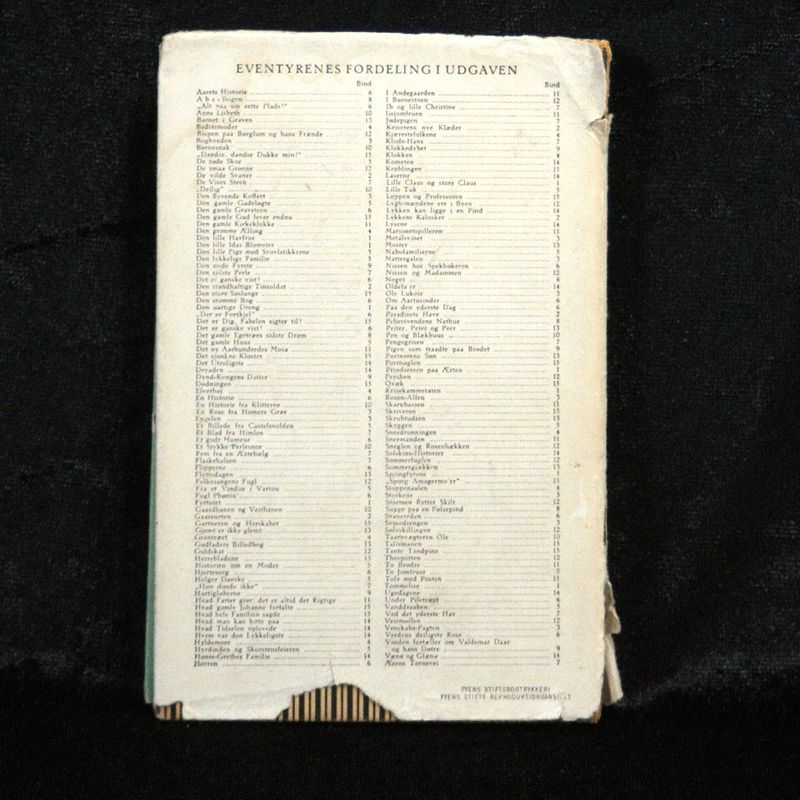 EVENTYRENES FORDELING I UDGAVEN
Bind
Aarets Historie 6
A b c-Bogen 8
„Alt paa sin rette Plads!" 6
Anne Lisbeth 10
Barnet i Graven 13
Bedstemoder 4
Bispen paa Børglum og hans Frænde 12
Boghveden 3
Børnesnak 10
„Dandse, dandse Dukke min!" 15
De røde Skoe
De smaa Grønne 12
De vilde Svaner 2
De Vises Steen 7
„Deilig" 10
Den flyvende Koffert 3
Den gamle Gadeløgte 5
Den gamle Gravsteen 6
Den gamle Gud lever endnu 15
Den gamle Kirkeklokke 11
Den grimme Ælling 4
Den lille Havfrue 1
Den lille Idas Blomster 1
Den lille Pige med Svovlstikkerne 5
Den lykkelige Familie 5
Den onde Fyrste 9
Den sidste Perle 7
Det er ganske vist! 6
Den standhaftige Tinsoldat 2
Den store Søslange 15
Den stumme Bog 6
Den uartige Dreng 1
„Der er Forskjel" 6
Det er Dig, Fabelen sigter til! 15
Det er ganske vist! 6
Det gamle Egetræes sidste Drøm 8
Det gamle Huus 5
Det ny Aarhundredes Musa 11
Det sjunkne Kloster 15
Det Utroligste 14
Dryaden 14
Dynd-Kongens Datter 9
Dødningen 15
Elverhøj 4
En Historie 6
En Historie fra Klitterne 10
En Rose fra Homers Grav 3
Engelen 3
Et Billede fra Castelsvolden 5
Et Blad fra Himlen 7
Et godt Humeur 6
Et Stykke Perlesnor 10
Fem fra en Ærtebælg 7
Flaskehalsen 7
Flipperne 6
Flyttedagen 13
Folkesangens Fugl 12
Fra et Vindue i Vartou 5
Fugl Phønix 6
Fyrtøiet 1
Gaardhanen og Veirhanen 10
Gaaseurten 2
Gartneren og Herskabet 15
Gjemt er ikke glemt 13
Grantræet 4
Gudfaders Billedbog 13
Guldskat 12
Herrebladene 15
Historien om en Moder 5
Hjertesorg 6
Holger Danske 5
„Hun duede ikke" 7
Hurtigløberne 9
Hvad Fatter gjør, det er altid det Rigtige 11
Hvad gamle Johanne fortalte 15
Hvad hele Familien sagde 15
Hvad man kan hitte paa 14
Hvad Tidselen oplevede 14
Hvem var den Lykkeligste 14
Hyldemoer 4
Hyrdinden og Skorstensfeieren 5
Hønse-Grethes Familie 14
Hørren 6
Bind
I Andegaarden 11
I Børnestuen 12
Ib og lille Christine 7
Iisjomfruen 11
Jødepigen 7
Keiserens nye Klæder 2
Kjærestefolkene 4
Klods-Hans 7
Klokkedybet 9
Klokken 4
Kometen 14
Krøblingen 15
Laserne 14
Lille Claus og store Claus 1
Lille Tuk 5
Loppen og Professoren 15
Lygtemændene ere i Byen 12
Lykken kan ligge i en Pind 14
Lykkens Kalosker 2
Lysene 14
Marionetspilleren 11
Metalsvinet 3
Moster 13
Nabofamilierne 5
Nattergalen 3
Nissen hos Spekhøkeren 6
Nissen og Madammen 12
Noget 8
Oldefa'er 14
Ole Lukøie 3
Om Aartusinder 6
Paa den yderste Dag 6
Paradisets Have 2
Pebersvendens Nathue 8
Peiter, Peter og Peer 13
Pen og Blækhuus 10
Pengegrisen 7
Pigen som traadte paa Brødet 9
Portnerens Søn 13
Portnøglen
Prindsessen paa Ærten 1
Psychen 12
Qvæk 15
Reisekammeraten 1
Rosen-Alfen 3
Skarnbassen 11
Skriveren 15
Skrubtudsen 13
Skyggen 5
Sneedronningen 4
Sneemanden 11
Sneglen og Rosenhækken 12
Solskins-Historier 14
Sommerfuglen 12
Sommergjækken 13
Springfyrene 5
„Spørg Amagermo'er" 15
Stoppenaalen 4
Storkene 3
Stormen flytter Skilt 12
Suppe paa en Pølsepind 8
Svanereden 6
Svinedrengen 3
Sølvskillingen 12
Taarnvægteren Ole 10
Talismanen 15
Tante Tandpine 15
Theepotten 12
To Brødre 11
To Jomfruer 7
Tolv med Posten 11
Tommelise 1
Ugedagene 14
Under Piletræet 6
Vanddraaben 5
Ved det yderste Hav 7
Veirmøllen 12
Venskabs-Pagten 3
Verdens deiligste Rose 6
Vinden fortæller om Valdemar Daae
og hans Døtre 9
Vænø og Glænø 14
Ærens Tornevei 7
FYENS STIFTSBOGTRYKKERI
FYENS STIFTS REPRODUKTIONSANSTALT